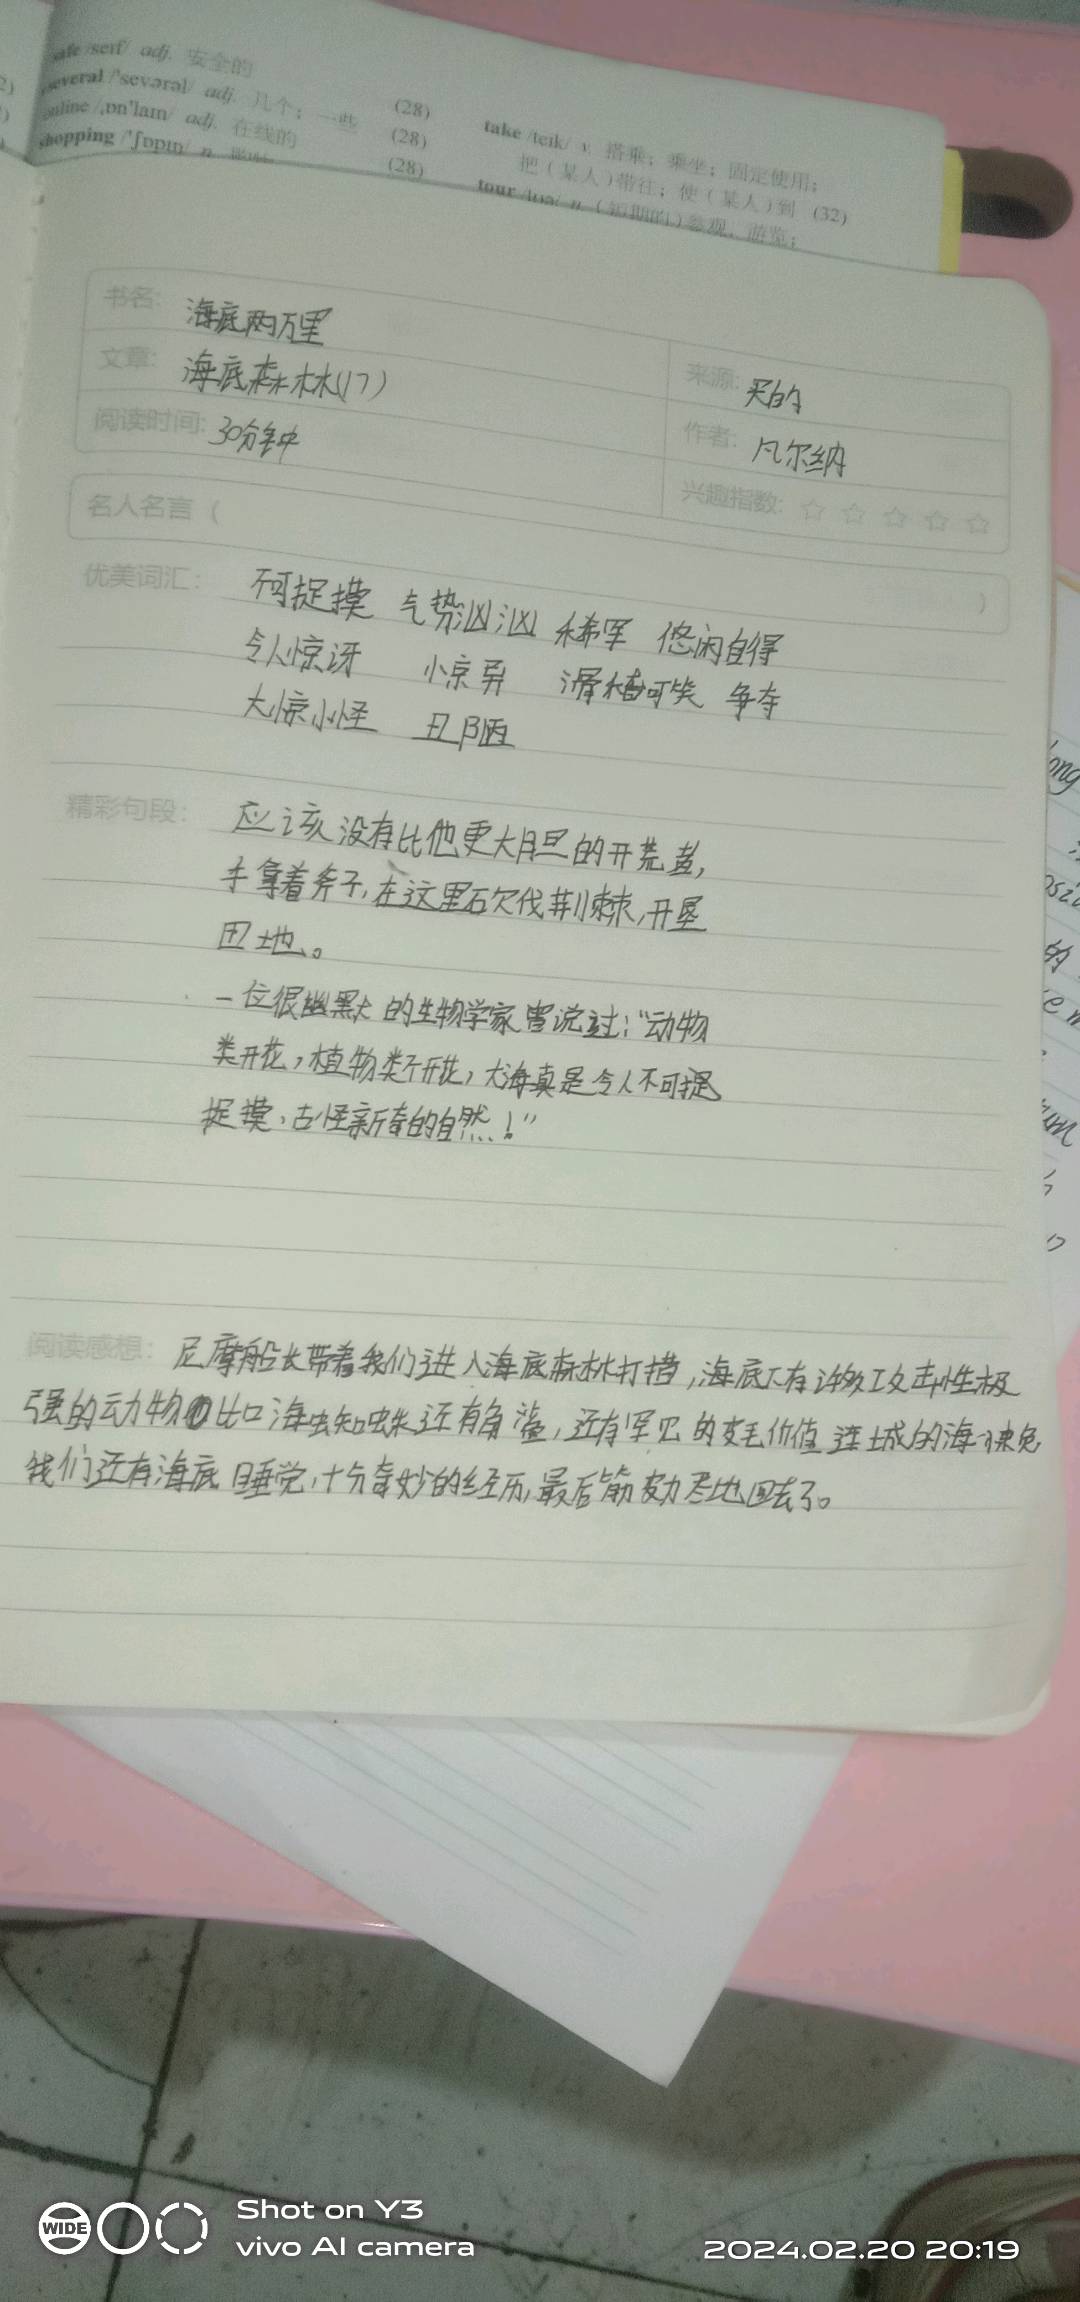 safe /seɪf/ adj. 安全的
several /'sevərəl/ adj. 几个；一些 (28)
online /ˌɒn'laɪn/ adj. 在线的 (28)
shopping /'ʃɒpɪŋ/ n. (28)
take /teɪk/ v. 搭乘；乘坐；固定使用；
把（某人）带往；使（某人）到 (32)
tour /tʊə/ n. （短期的）参观，游览；
书名: 海底两万里
来源: 买的
文章: 海底森林(17)
作者: 凡尔纳
阅读时间: 30分钟
兴趣指数: ☆ ☆ ☆ ☆ ☆
名人名言（ ）
优美词汇： 不可捉摸 气势汹汹 稀罕 悠闲自得
令人惊讶 惊异 滑稽可笑 争夺
大惊小怪 丑陋
精彩句段： 应该没有比他更大胆的开荒
手拿着斧子,在这里砍伐荆棘,开垦
田地。
一位很幽默的生物学家曾说过:“动物
类开花，植物类不开花，大海真是令人不可捉
捉摸、古怪新奇的自然！”
阅读感想： 尼摩船长带着我们进入海底森林打猎,海底下有许多攻击性极
强的动物 比如海蜘蛛还有角鲨，还有罕见的 价值连城的海
我们还有海底睡觉,十分奇妙的经历,最后筋疲力尽地回去了。
Shot on Y3
vivo AI camera
WIDE
2024.02.20 20:19